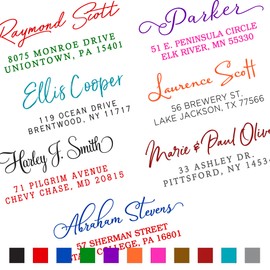 Raymond Scott
8075 MONROE DRIVE
UNIONTOWN, PA 15401
Parker
51 E. PENINSULA CIRCLE
ELK RIVER, MN 55330
Ellis Cooper
119 OCEAN DRIVE
BRENTWOOD, NY 11717
Laurence Scott
56 BREWERY ST.
LAKE JACKSON, TX 77566
Harley J. Smith
71 PILGRIM AVENUE
CHEVY CHASE, MD 20815
Marie & Paul Olive
33 ASHLEY DR.
PITTSFORD, NY 14534
Abraham Stevens
57 SHERMAN STREET
STATE COLLEGE, PA 16801